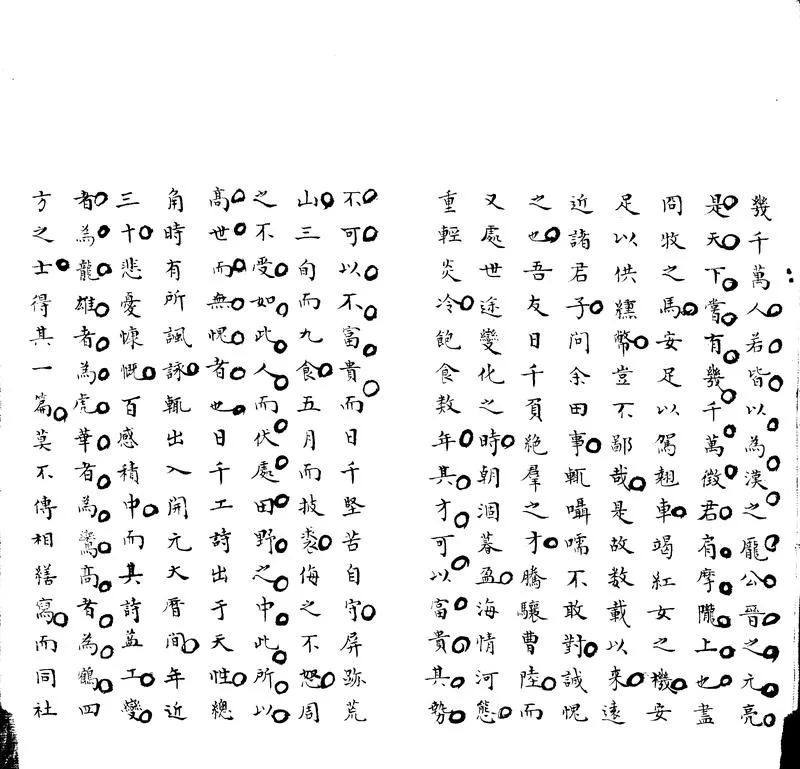 幾千萬人若皆以為漢之龐公晉之元亮
是天下嘗有幾千萬徵君肩摩隴上也盡
問牧之馬安足以駕翹車竭紅女之機安
足以供纁幣豈不鄙哉是故数載以來遠
近諸君子問余田事輒囁嚅不敢對誠愧
之也吾友日千負絶羣之才騰驤曹陸而
又處世途變化之時朝涸暮盈海情河態
重輕炎冷飽食数年其才可以富貴其勢
不可以不富貴而日千堅苦自守屏跡荒
山三旬而九食五月而披裘侮之不怒周
之不受如此人而伏處田野之中此所以
高世而無愧者也日千工詩出于天性總
角時有所諷詠輒出入開元大曆間年近
三十悲憂慷慨百感積中而其詩益工變
者為龍雄者為虎華者為鸞高者為鶴四
方之士得其一篇莫不傳相繕寫而同社